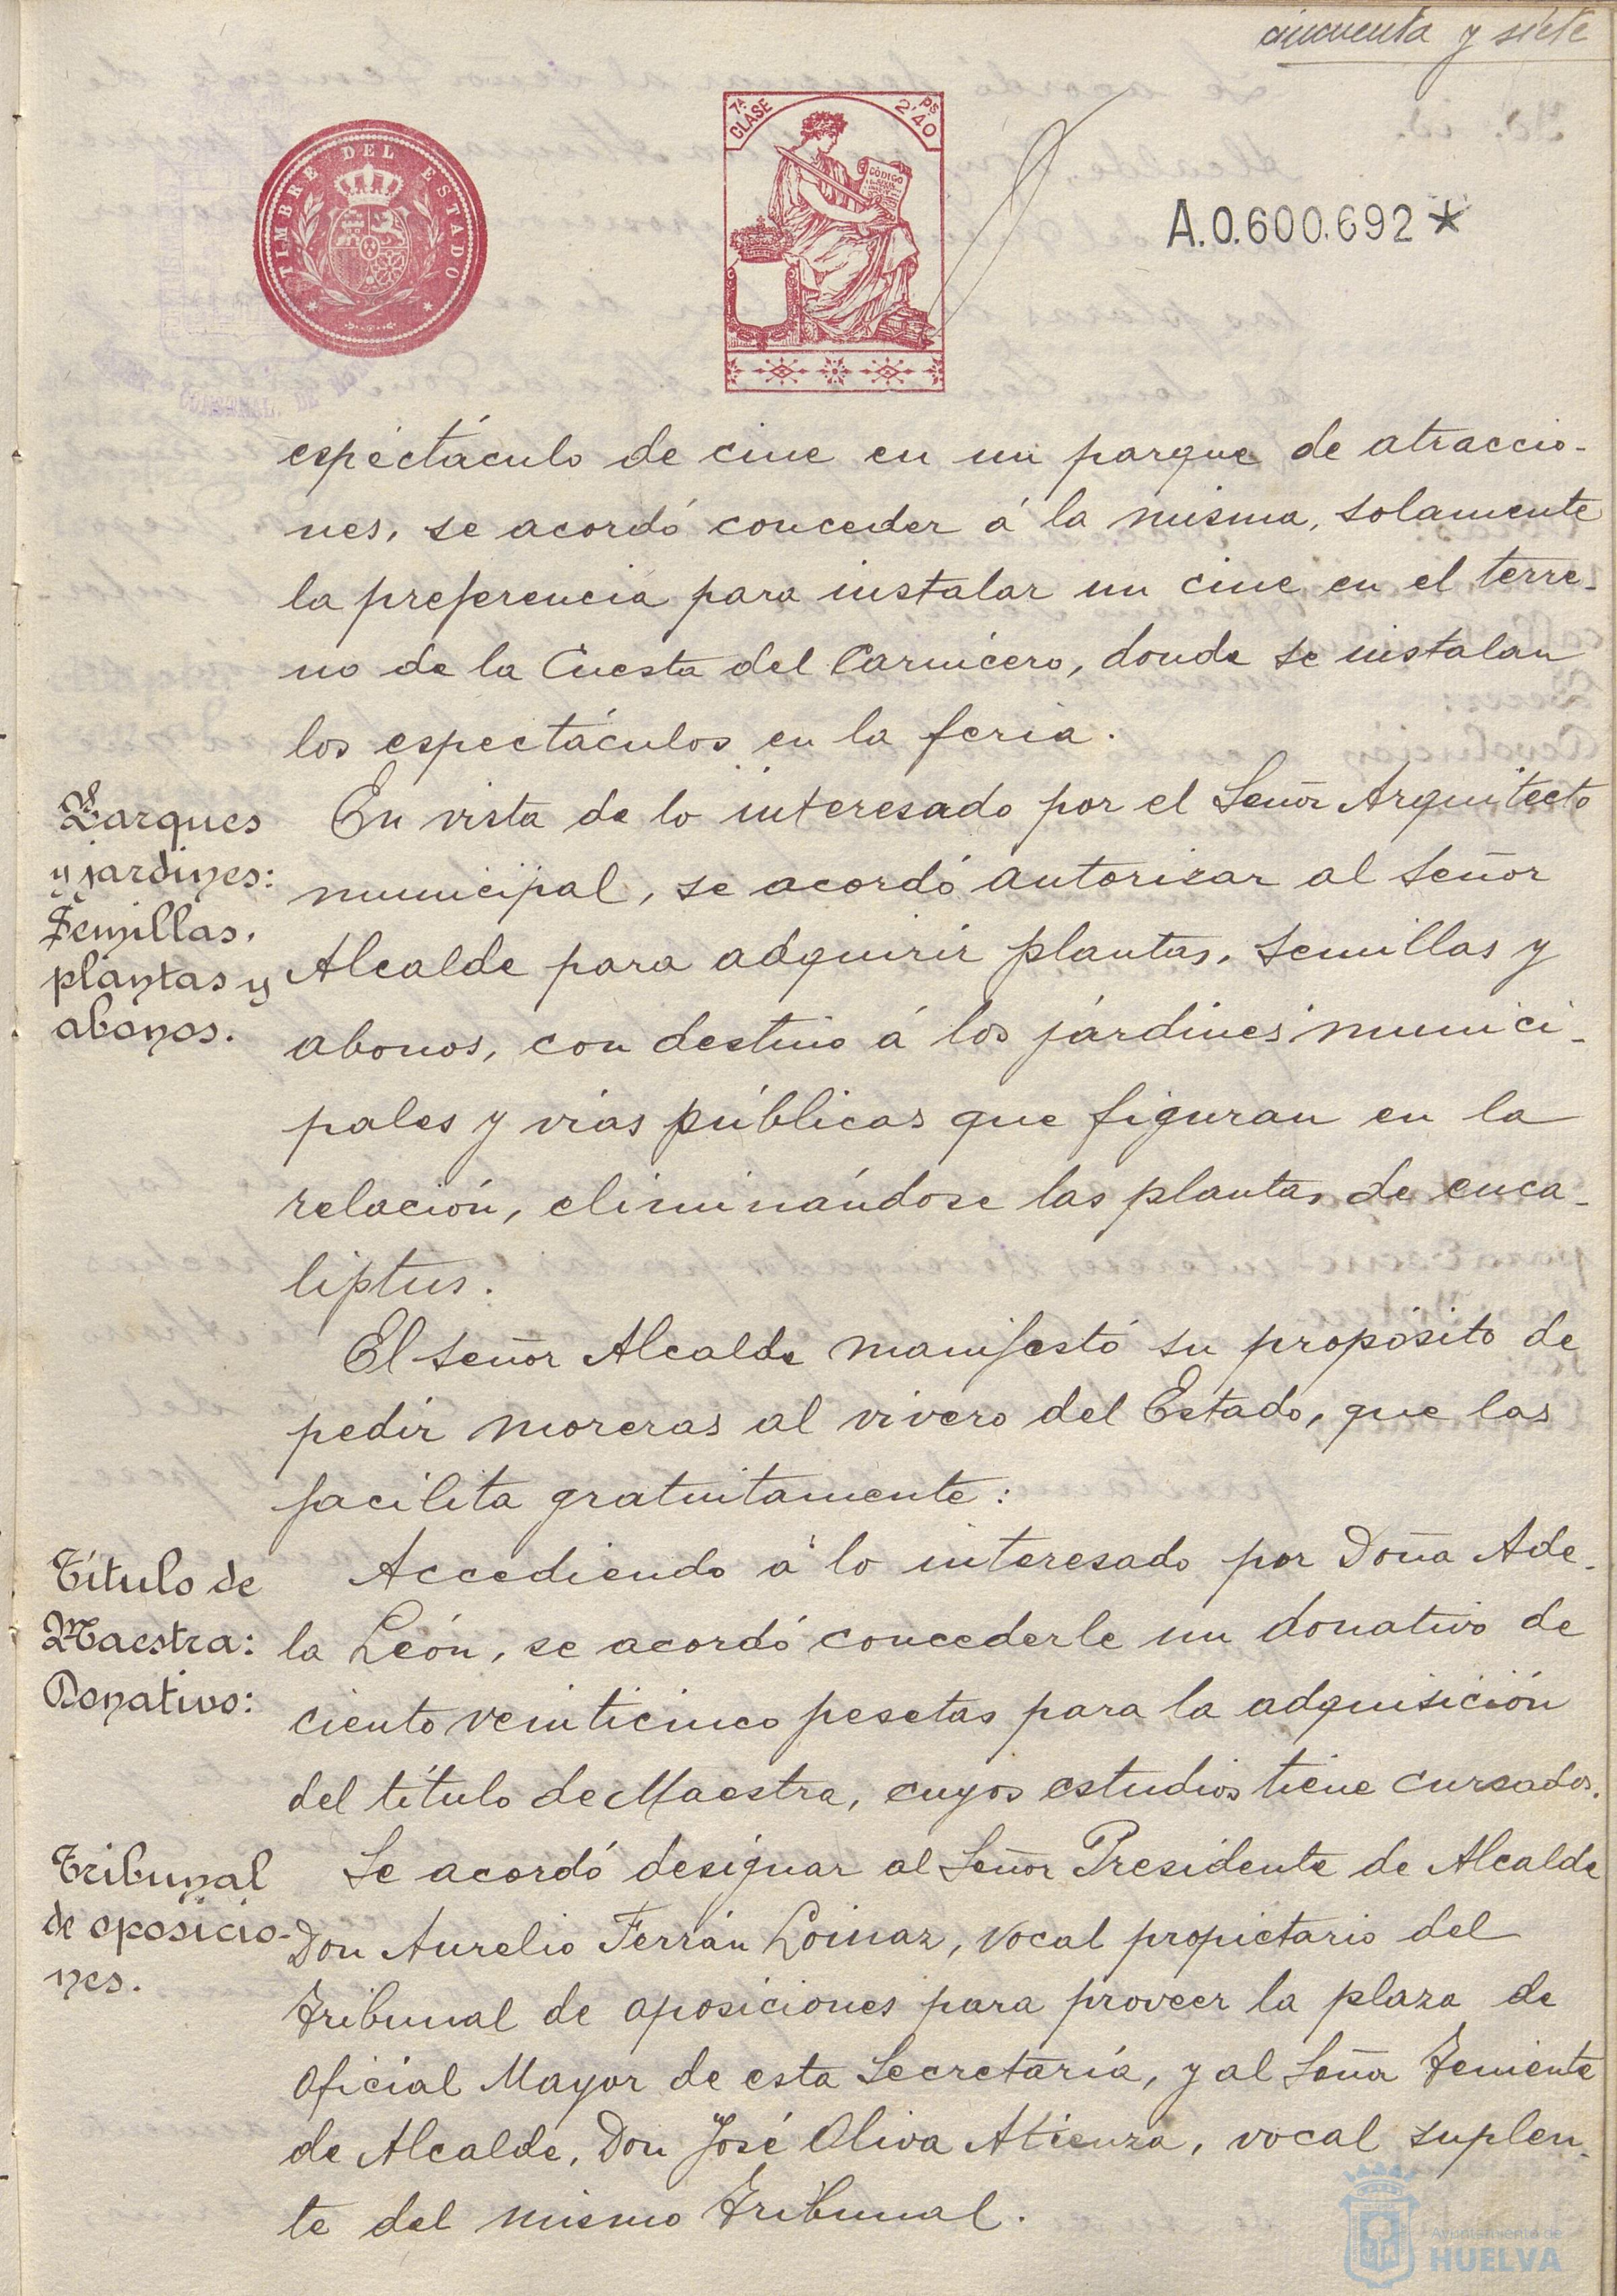 cincuenta y siete
TIMBRE DEL ESTADO
7ª CLASE
2'40 PS
CÓDIGO
A.0.600.692*
espectáculo de cine en un parque de atraccio-
nes, se acordó conceder á la misma, solamente
la preferencia para instalar un cine en el terre-
no de la Cuesta del Carnicero, donde se instalan
los espectáculos en la feria.
Parques
y jardines:
Semillas,
plantas y
abonos.
En vista de lo interesado por el Señor Arquitecto
municipal, se acordó autorizar al Señor
Alcalde para adquirir plantas, semillas y
abonos, con destino á los jardines munici-
pales y vías públicas que figuran en la
relación, eliminándose las plantas de euca-
liptus.
El Señor Alcalde manifestó su propósito de
pedir moreras al vivero del Estado, que las
facilita gratuitamente:
Título de
Maestra:
Donativo:
Accediendo á lo interesado por Doña Ade-
la León, se acordó concederle un donativo de
ciento veinticinco pesetas para la adquisición
del título de Maestra, cuyos estudios tiene cursados.
Tribunal
de oposicio-
nes.
Se acordó designar al Señor Presidente de Alcalde
Don Aurelio Ferrán Loinaz, vocal propietario del
Tribunal de oposiciones para proveer la plaza de
Oficial Mayor de esta Secretaría, y al Señor Teniente
de Alcalde, Don José Oliva Atienza, vocal suplen-
te del mismo Tribunal.
Ayuntamiento de
HUELVA